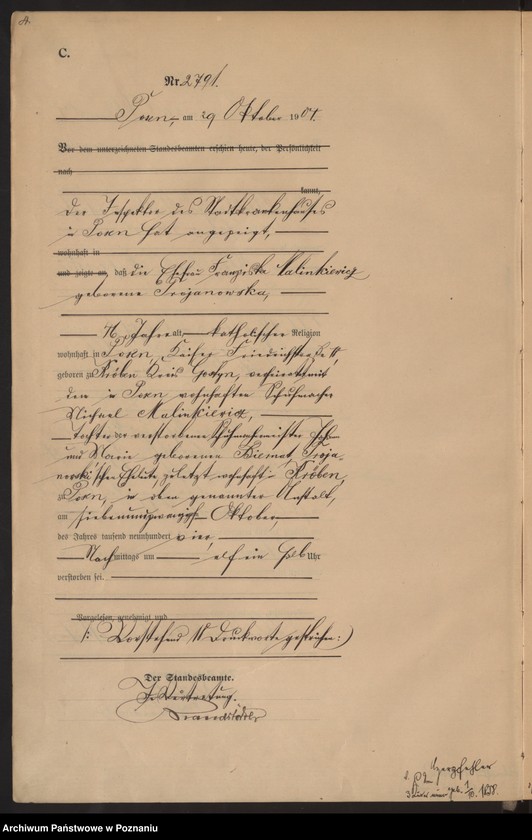 C.
Nr. 2791.
Posen, am 29 Oktober 1904.
Vor dem unterzeichneten Standesbeamten erschien heute, der Persönlichkeit
nach
kannt,
Der Inspektor des Stadtkrankenhauses
in Posen hat angezeigt,
wohnhaft in
und zeigte an, daß die Ehefrau Franziska Malinkiewicz
geborene Trojanowska,
Jahre alt, katholischer Religion
wohnhaft in Posen, Kaiser Friedrichstraße
geboren zu Kröben Kreis Gostyn, verheiratet mit
dem in Posen wohnhaften Schuhmacher
Michael Malinkiewicz,
Tochter der verstorbenen Schuhmachermeister
und Marie geborenen Biernat, Troja-
nowski'schen Eheleute zuletzt wohnhaft in Kröben,
zu Posen, in der genannten Anstalt,
am siebenundzwanzigsten Oktober,
des Jahres tausend neunhundert vier,
Nachmittags um elf ein halb Uhr
verstorben sei.
Vorgelesen, genehmigt und
/: Vorstehend Druckworte gestrichen :/
Der Standesbeamte.
In Vertretung.
Herzfehler
Archiwum Państwowe w Poznaniu